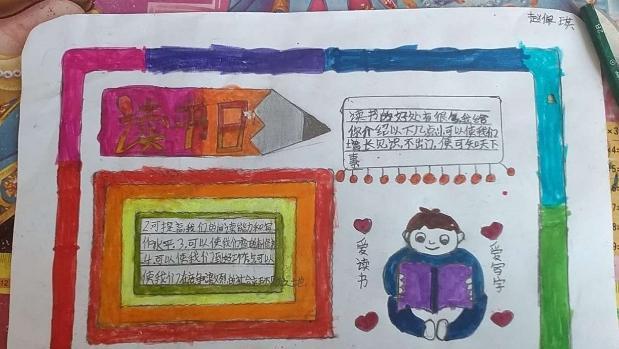 赵佩琪
读书日
读书的好处有很多我给
你介绍以下几点1.可以使我们
增长见识,不出门,便可知天下
事
2.可提高我们的阅读能力和写
作水平3.可以使我们
4.可以使我们 可以
使我们
爱读书
爱写字